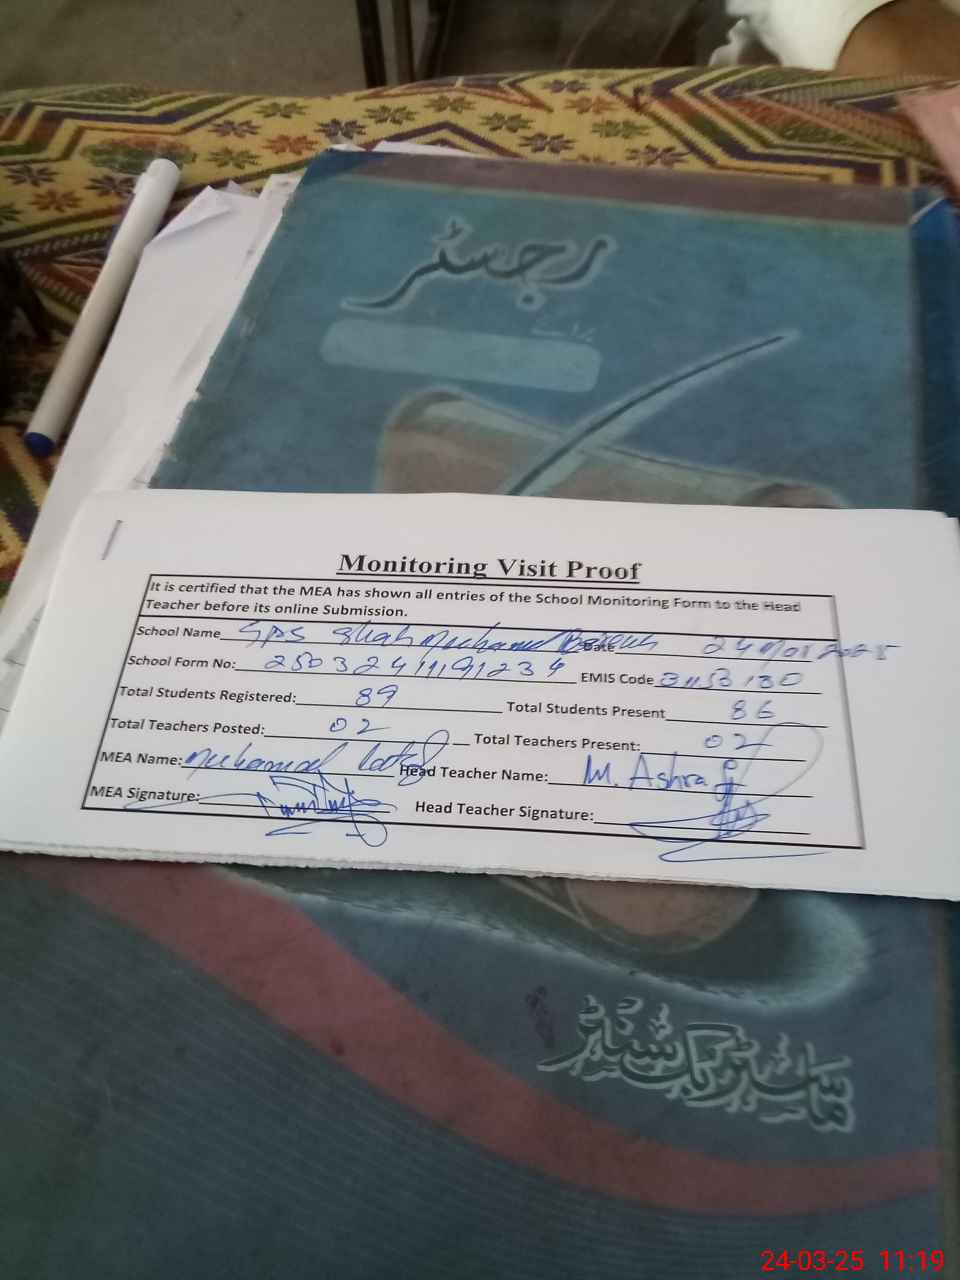 رجسٹر
برائے
Monitoring Visit Proof
It is certified that the MEA has shown all entries of the School Monitoring Form to the Head
Teacher before its online Submission.
School Name GPS Shah Muhamad Date 24
School Form No: 25032411191234 EMIS Code
Total Students Registered: 89 Total Students Present 86
Total Teachers Posted: 02 Total Teachers Present: 02
MEA Name: Muhammad Head Teacher Name: M. Ashraf
MEA Signature: Head Teacher Signature:
ماسٹر بک سنٹر
24-03-25 11:19